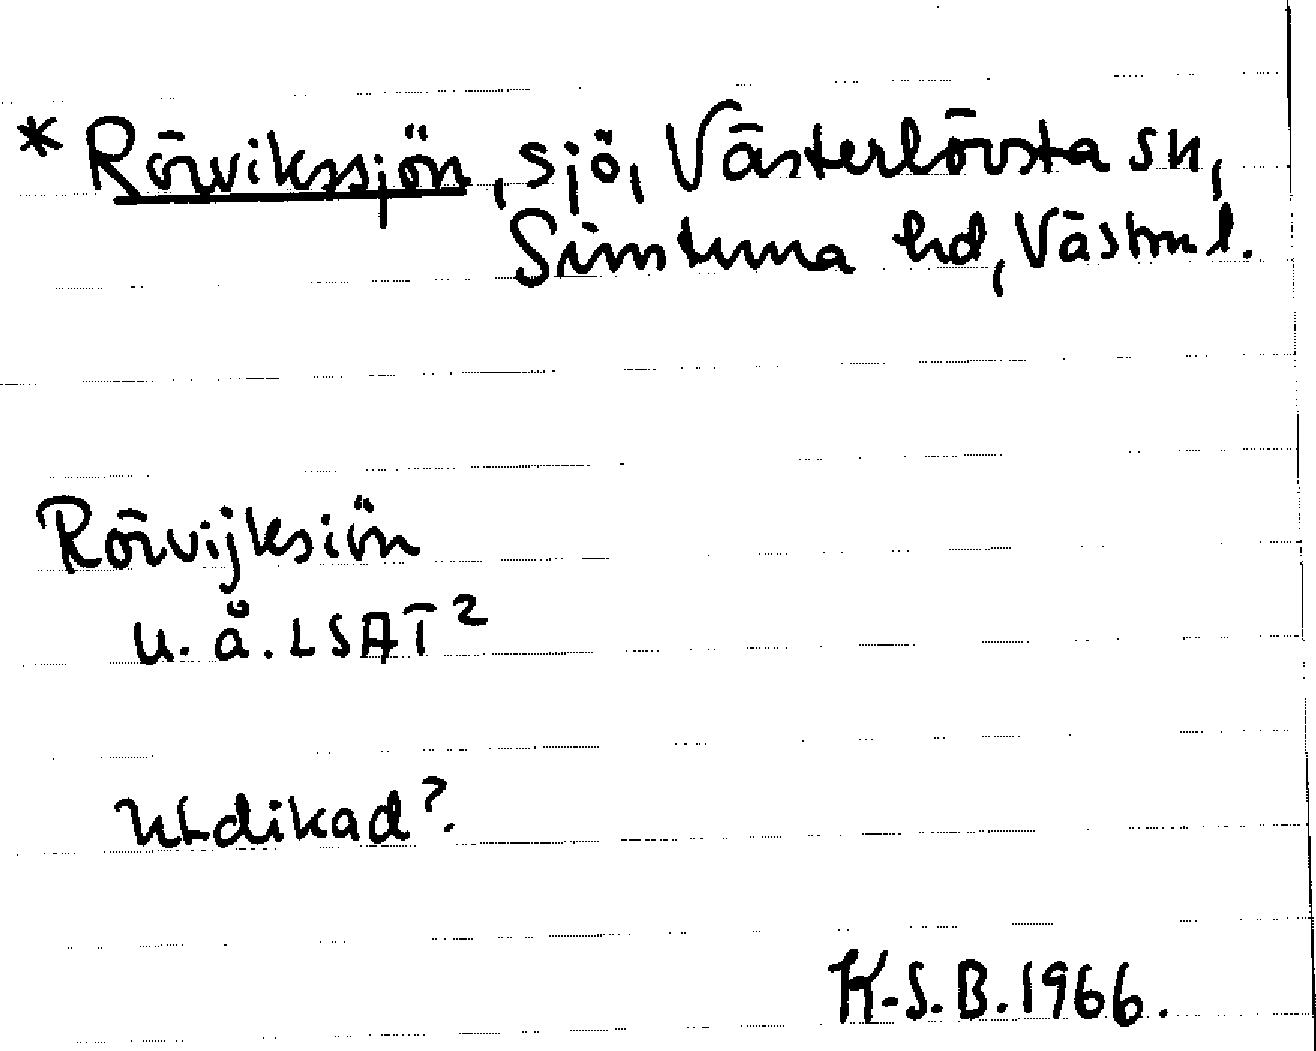 * Rörvikssjön, sjö, Västerlövsta sn,
Simtuna hd, Västml.
Rörvijksiön
u.å. LSAT²
Utdikad?
K-S.B. 1966.